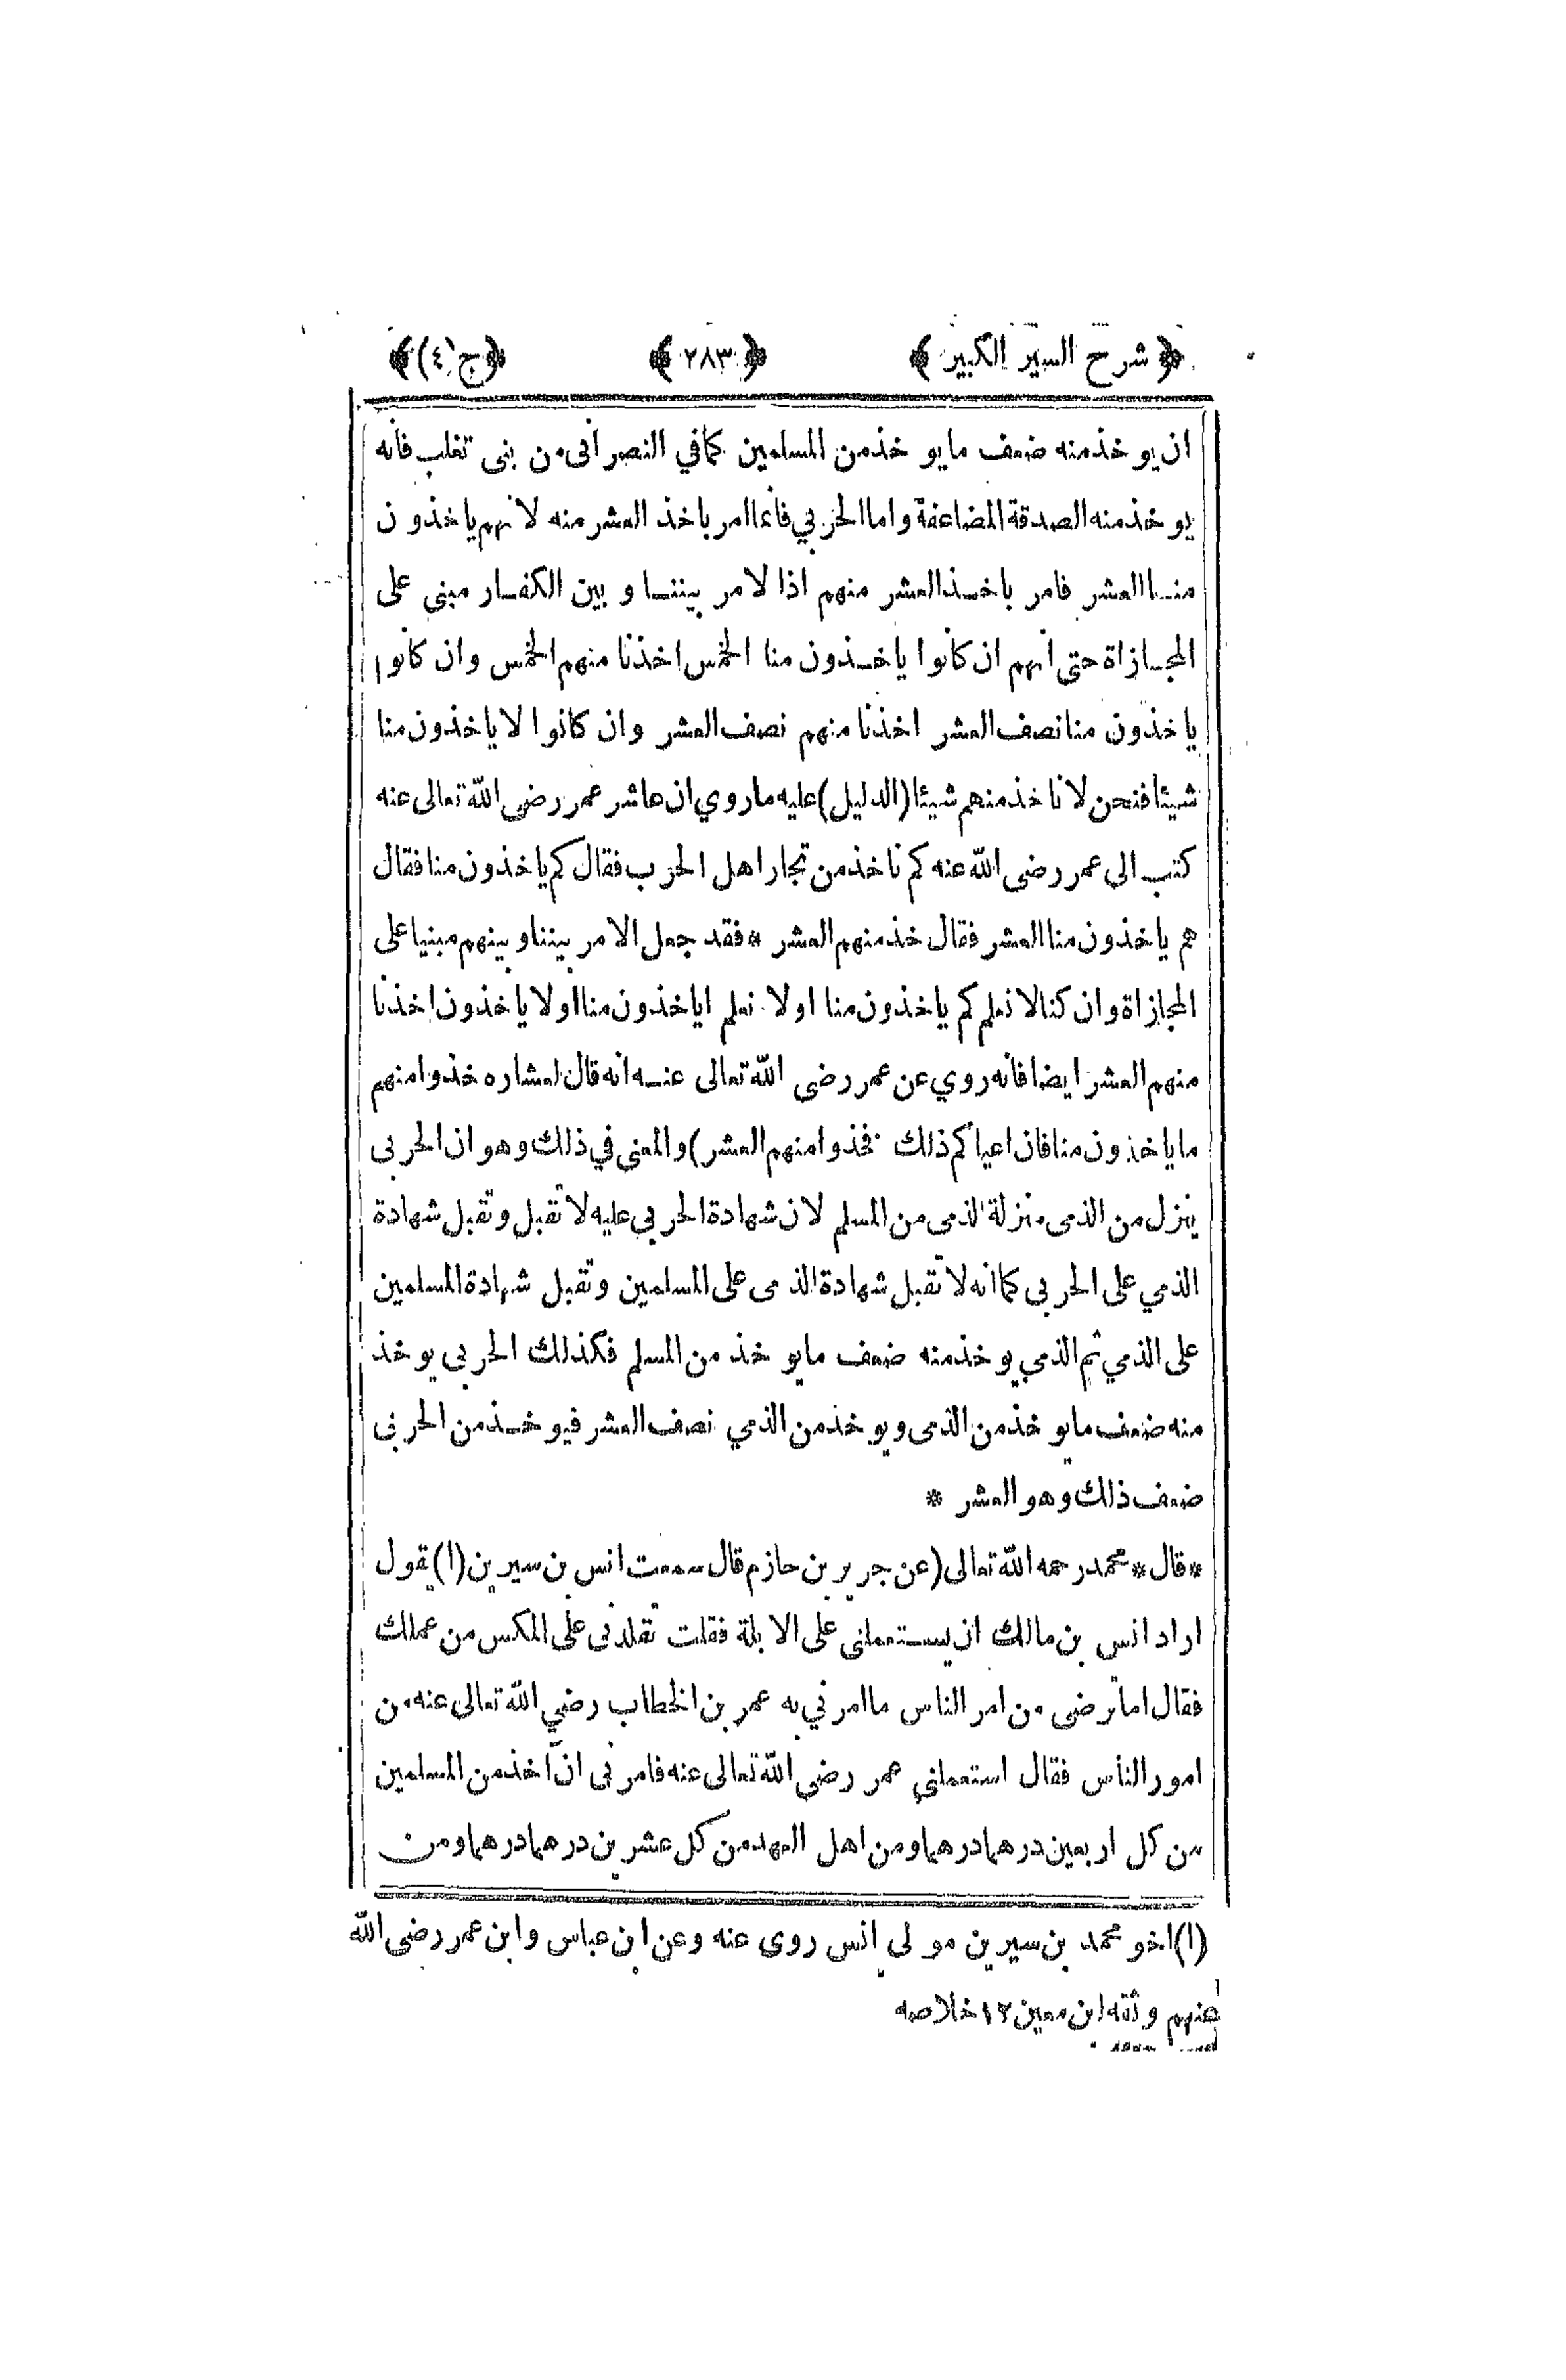 ﴿ شرح السير الكبير ﴾ ﴿ ٢٨٣ ﴾ ﴿ ج (٤) ﴾
ان يو خذ منه ضعف ما يو خذ من المسلمين كما في النصراني من بني تغلب فانه
يو خذ منه الصدقة المضاعفة واما الحربي فانما امر باخذ العشر منه لا نهم ياخذون
منا العشر فامر باخذ العشر منهم اذا لا مر بيننا و بين الكفار مبني على
المجازاة حتى انهم ان كانوا ياخذون منا الخمس اخذنا منهم الخمس وان كانوا
ياخذون منا نصف العشر اخذنا منهم نصف العشر وان كانوا لا ياخذون منا
شيئا فنحن لا نا خذ منهم شيئا (الدليل) عليه ما روي ان عاشر عمر رضى الله تعالى عنه
كتب الى عمر رضى الله عنه كم ناخذ من تجار اهل الحرب فقال كم ياخذون منا فقال
هم يا خذون منا العشر فقال خذ منهم العشر * فقد جعل الا مر بيننا و بينهم مبنيا على
المجازاة وان كنا لا نعلم كم ياخذون منا او لا نعلم اياخذون منا او لا يا خذون اخذنا
منهم العشر ايضا فانه روي عن عمر رضى الله تعالى عنه انه قال لعشاره خذوا منهم
ما يا خذون منا فان اعيا كم ذلك فخذوا منهم العشر) والمعنى في ذلك وهو ان الحربى
ينزل من الذمى منزلة الذمى من المسلم لا ن شهادة الحربي عليه لا تقبل وتقبل شهادة
الذمي على الحربى كما انه لا تقبل شهادة الذمى على المسلمين وتقبل شهادة المسلمين
على الذمي ثم الذمي يو خذ منه ضعف ما يو خذ من المسلم فكذلك الحربى يو خذ
منه ضعف ما يو خذ من الذمى و يو خذ من الذمي نصف العشر فيو خذ من الحربى
ضعف ذلك وهو العشر *
* قال * محمد رحمه الله تعالى (عن جرير بن حازم قال سمعت انس بن سيرين (١) يقول
اراد انس بن مالك ان يستعملنى على الا بلة فقلت تقلدنى على المكس من عملك
فقال اما ترضى من امر الناس ما امرني به عمر بن الخطاب رضي الله تعالى عنه من
امور الناس فقال استعملني عمر رضي الله تعالى عنه فامرنى ان آخذ من المسلمين
من كل اربعين درهما درهما ومن اهل العهد من كل عشرين درهما درهما ومن
(١) اخو محمد بن سيرين مولى انس روى عنه وعن ابن عباس وابن عمر رضى الله
عنهم وثقه ابن معين ١٢ خلاصه